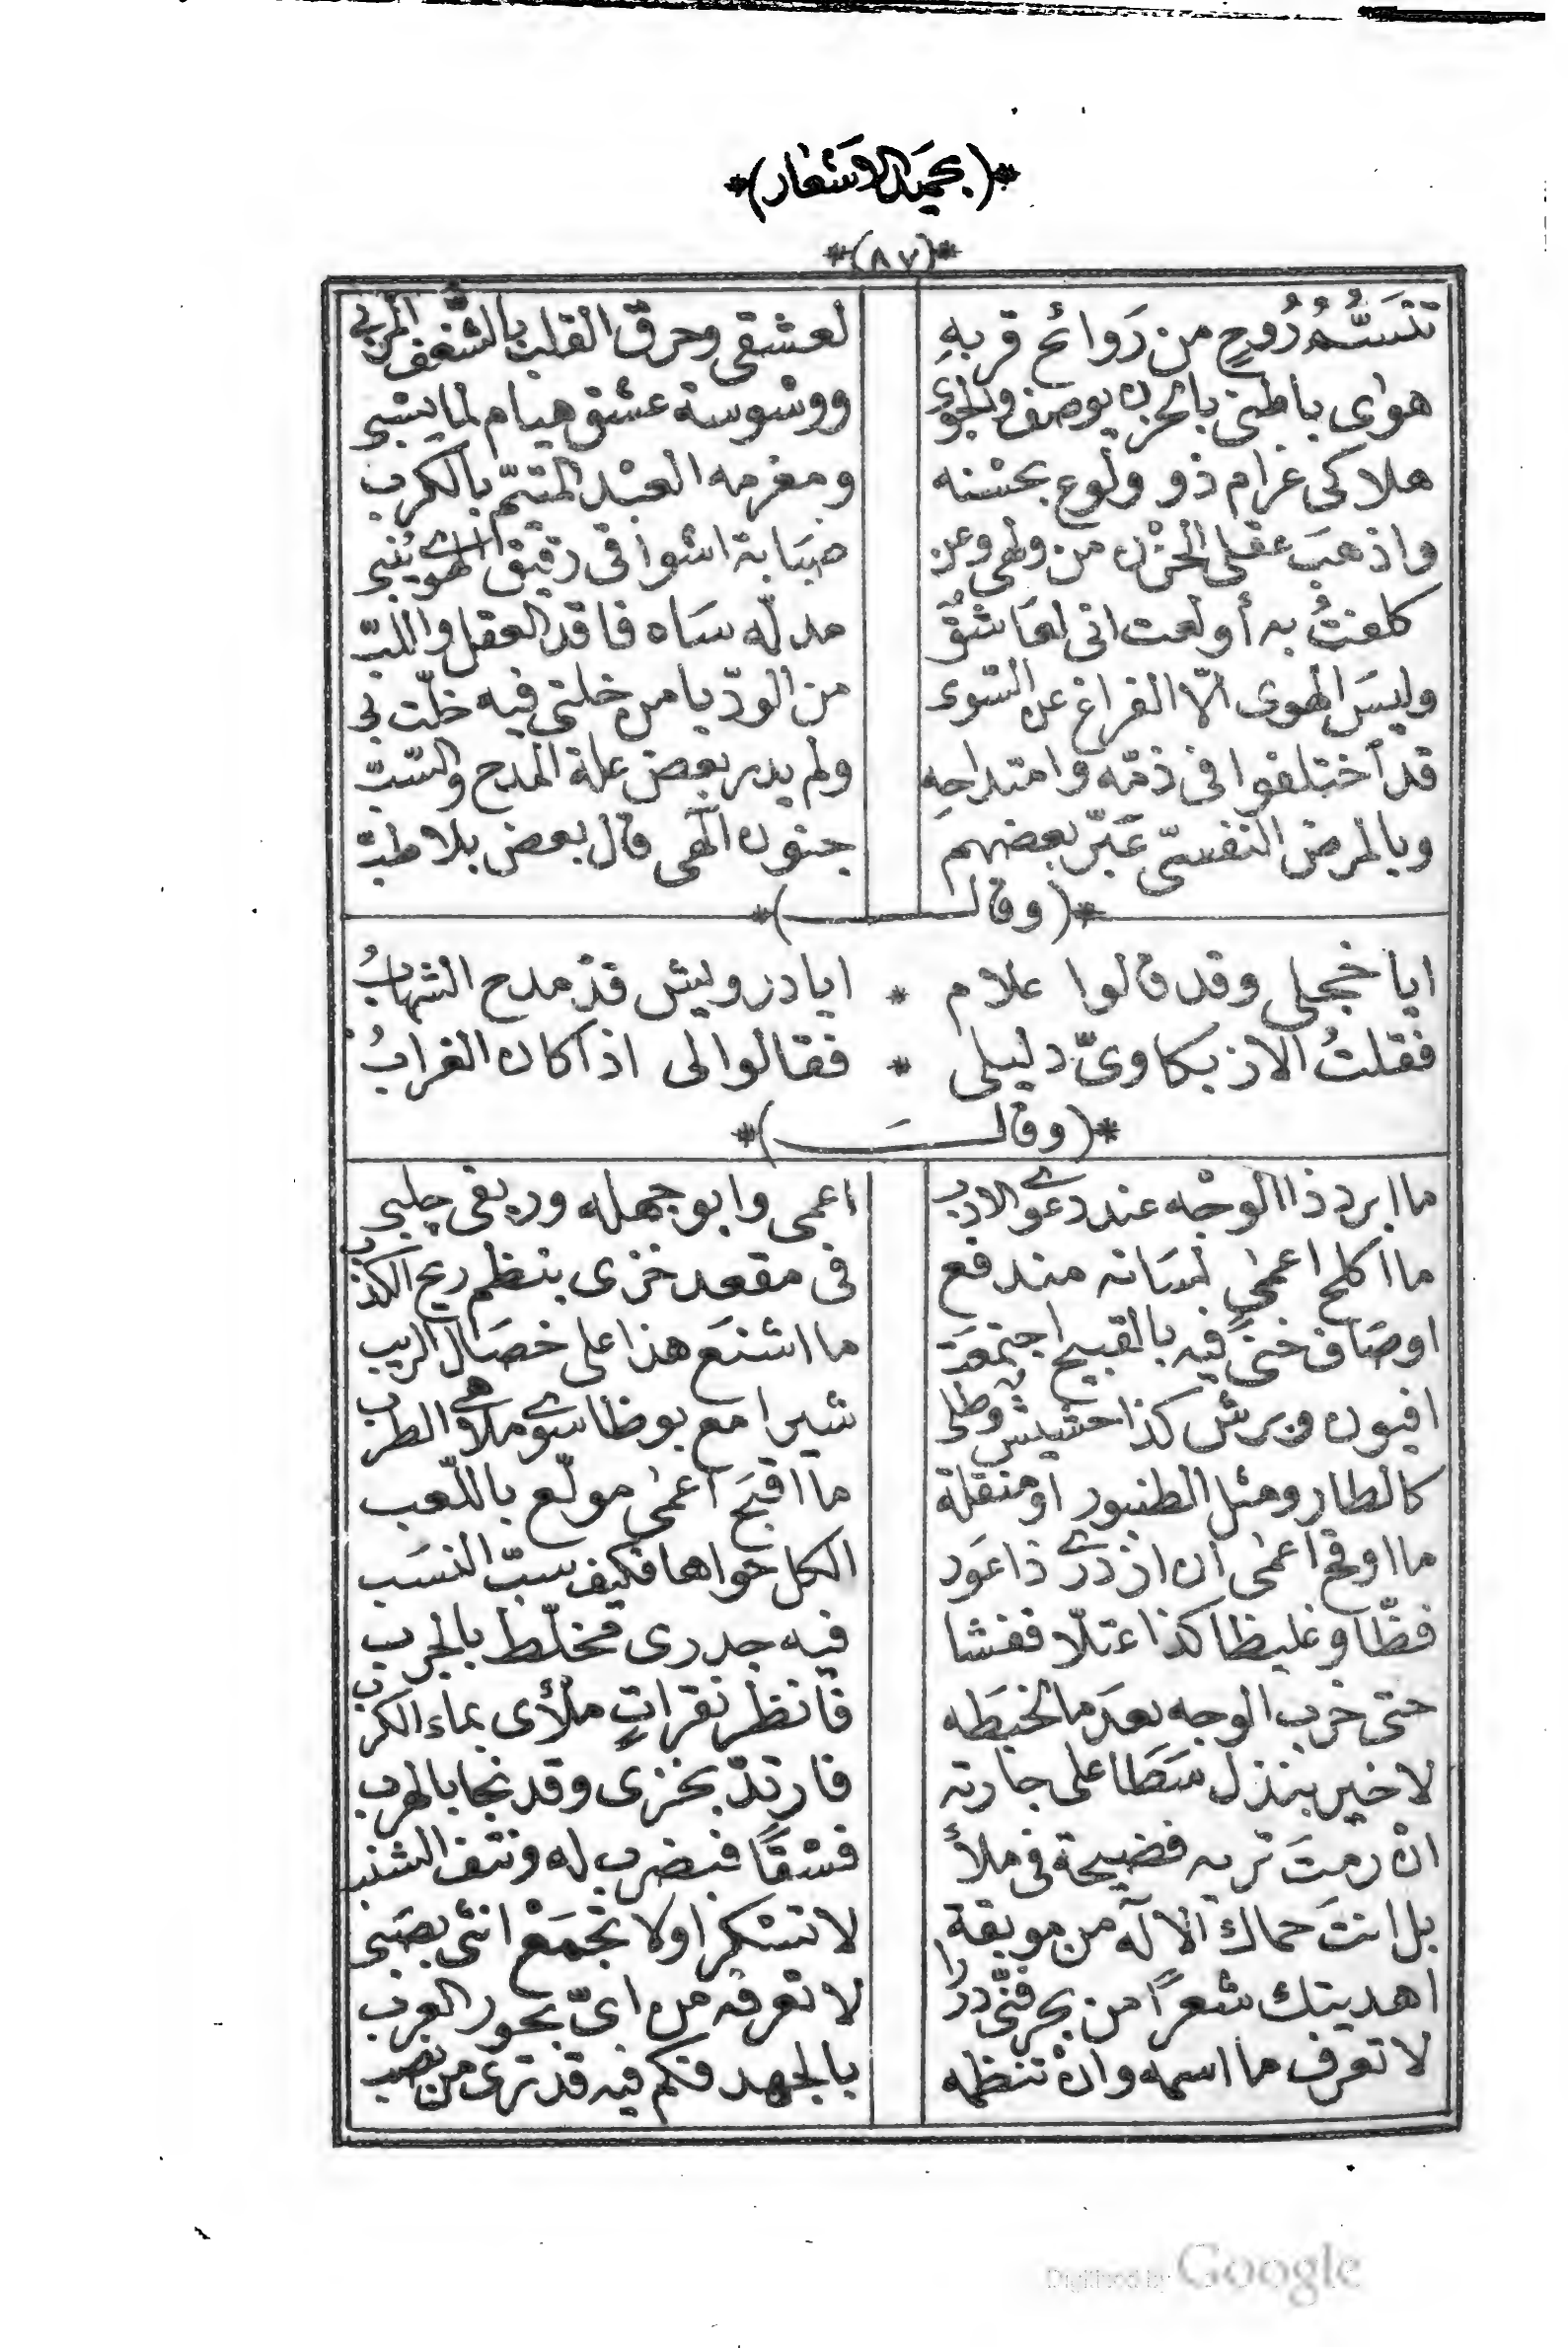 *(بحميد الاشعار)*
*(٨٧)*
تنسَّمُ رُوحٍ من رَوائح قربهِ لعشقى وحرق القلب بالشغف
هواى باطنى بالحزن يوصف والجوى ووسْوسة عشق هيام لما يسْبى
هلاكى غرام ذو ولوع بحسْنه ومغرمه العبْد المتيّم بالكرب
واذهبَ عقلى الحزْن من ولهى وعن صَبَابة اشواقى رقيق الهوى يُنبى
كلفتُ به أولعت انى لعَاشقٌ مدلّه سَاه فاقد العقل واللبّ
وليسَ الهوى الّا الفراغ عن السّوى من الودّ يا من خلتى فيه خلّت بى
قد اختلفوا فى ذمّه وامتداحهِ ولم يدر بعض علة المدح والسّبّ
وبالمرض النفسىّ عَبّر بعضهم جنون الٓهى قال بعض بلا طبّ
*(وقال)*
ايا خجلى وقد قالوا علام * ايا درويش قدْ مدح الشهابُ
فقلتُ الازبكاوىّ دليلى * فقالوا لى اذا كان الغرابُ
*(وقالَ)*
ما ابرد ذا الوجْه عند دعوى الادب اعمى وابو جهله وريقى چلبى
ما اكلح اعمىٰ لسَانه مندفع فى مقعد خزى بنظم ريح الكذب
اوصَاف خنىً فيه بالقبيح اجتمعَتْ ما اشنعَ هذا على خصَال الريب
افيون وبرش كذا حشيش وطلى شيرا مع بوظا سوى ملاهى الطرب
كالطار ومثل الطنبور او منقلة ما اقبَح اعمىٰ مولّع باللّعب
ما اوقح اعمىٰ ان ازدرى ذا عَور الكل حواها فكيف سبّ النسَب
فظّا وغليظا كذا عتلّا ففشا فيه جدرى مخلّط بالجرب
حتى خرب الوجه بعدَما لخبَطَه فانظر نقراتٍ ملأى بماء الكرب
لا خير بنذل سَطَا على جارته فارتدّ بخزى وقد نجا بالهرب
انْ رمتَ تريه فضيحة فى ملأ فسْقًا فبضرب له ونتف الشنب
بل انتَ حماك الالٓه من موبقة لا تسْكر او لا تجْمَعْ انثى بصَبى
اهديتك شعرًا من بحر فنّى دررا لا تعْرفه من اىّ بحور العرب
لا تعرف ما اسمه وانْ تنظمه بالجهد فكم فيه قد ترى من نصب
Digitized by Google